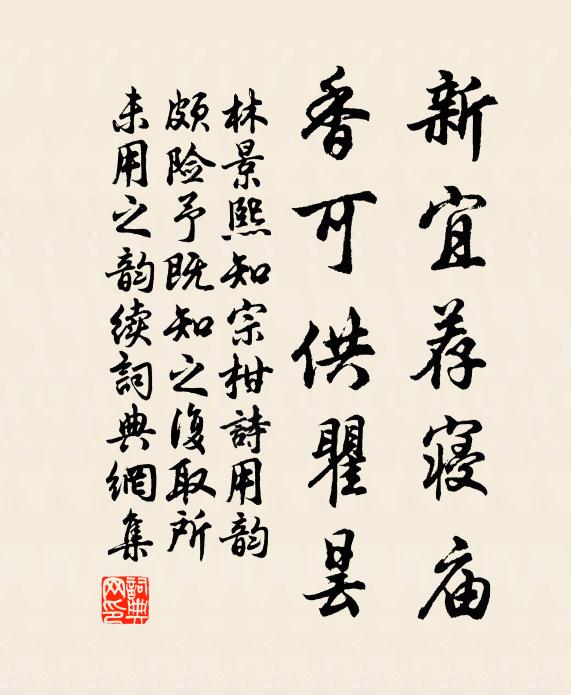 新宜荐寝庙
香可供瞿昙
林景熙知宗柑詩用韵
颇险予既知之復取所
未用之韵续詞典網集
詞典網印